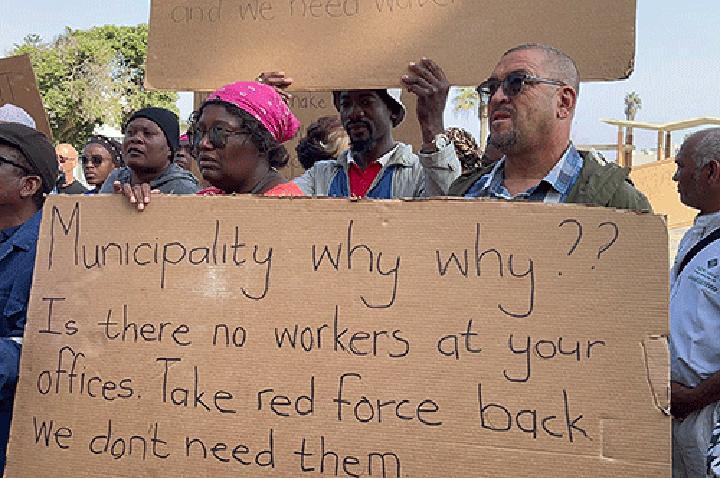 and we need water
make
Municipality why why??
Is there no workers at your
offices. Take red force back
we don't need them.